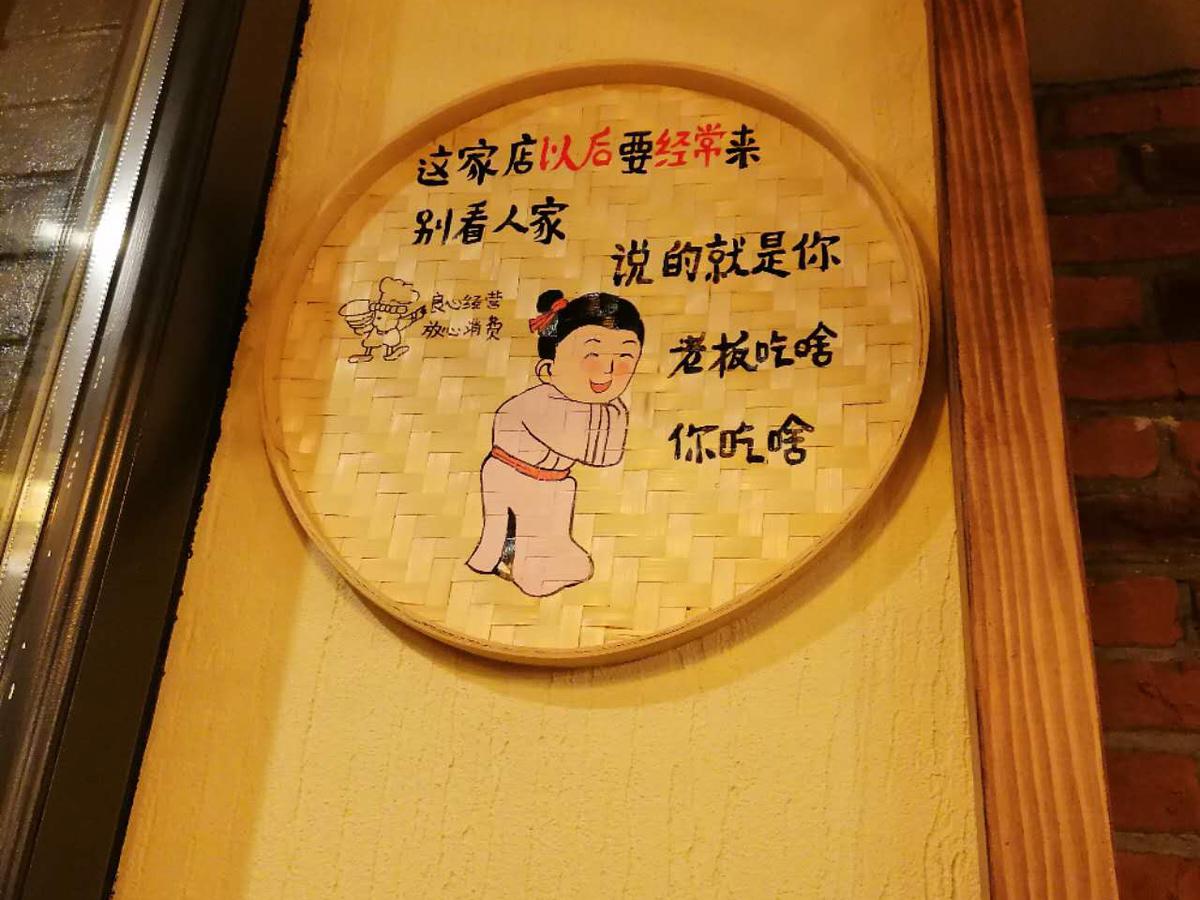 这家店以后要经常来
别看人家
说的就是你
良心经营
放心消费
老板吃啥
你吃啥